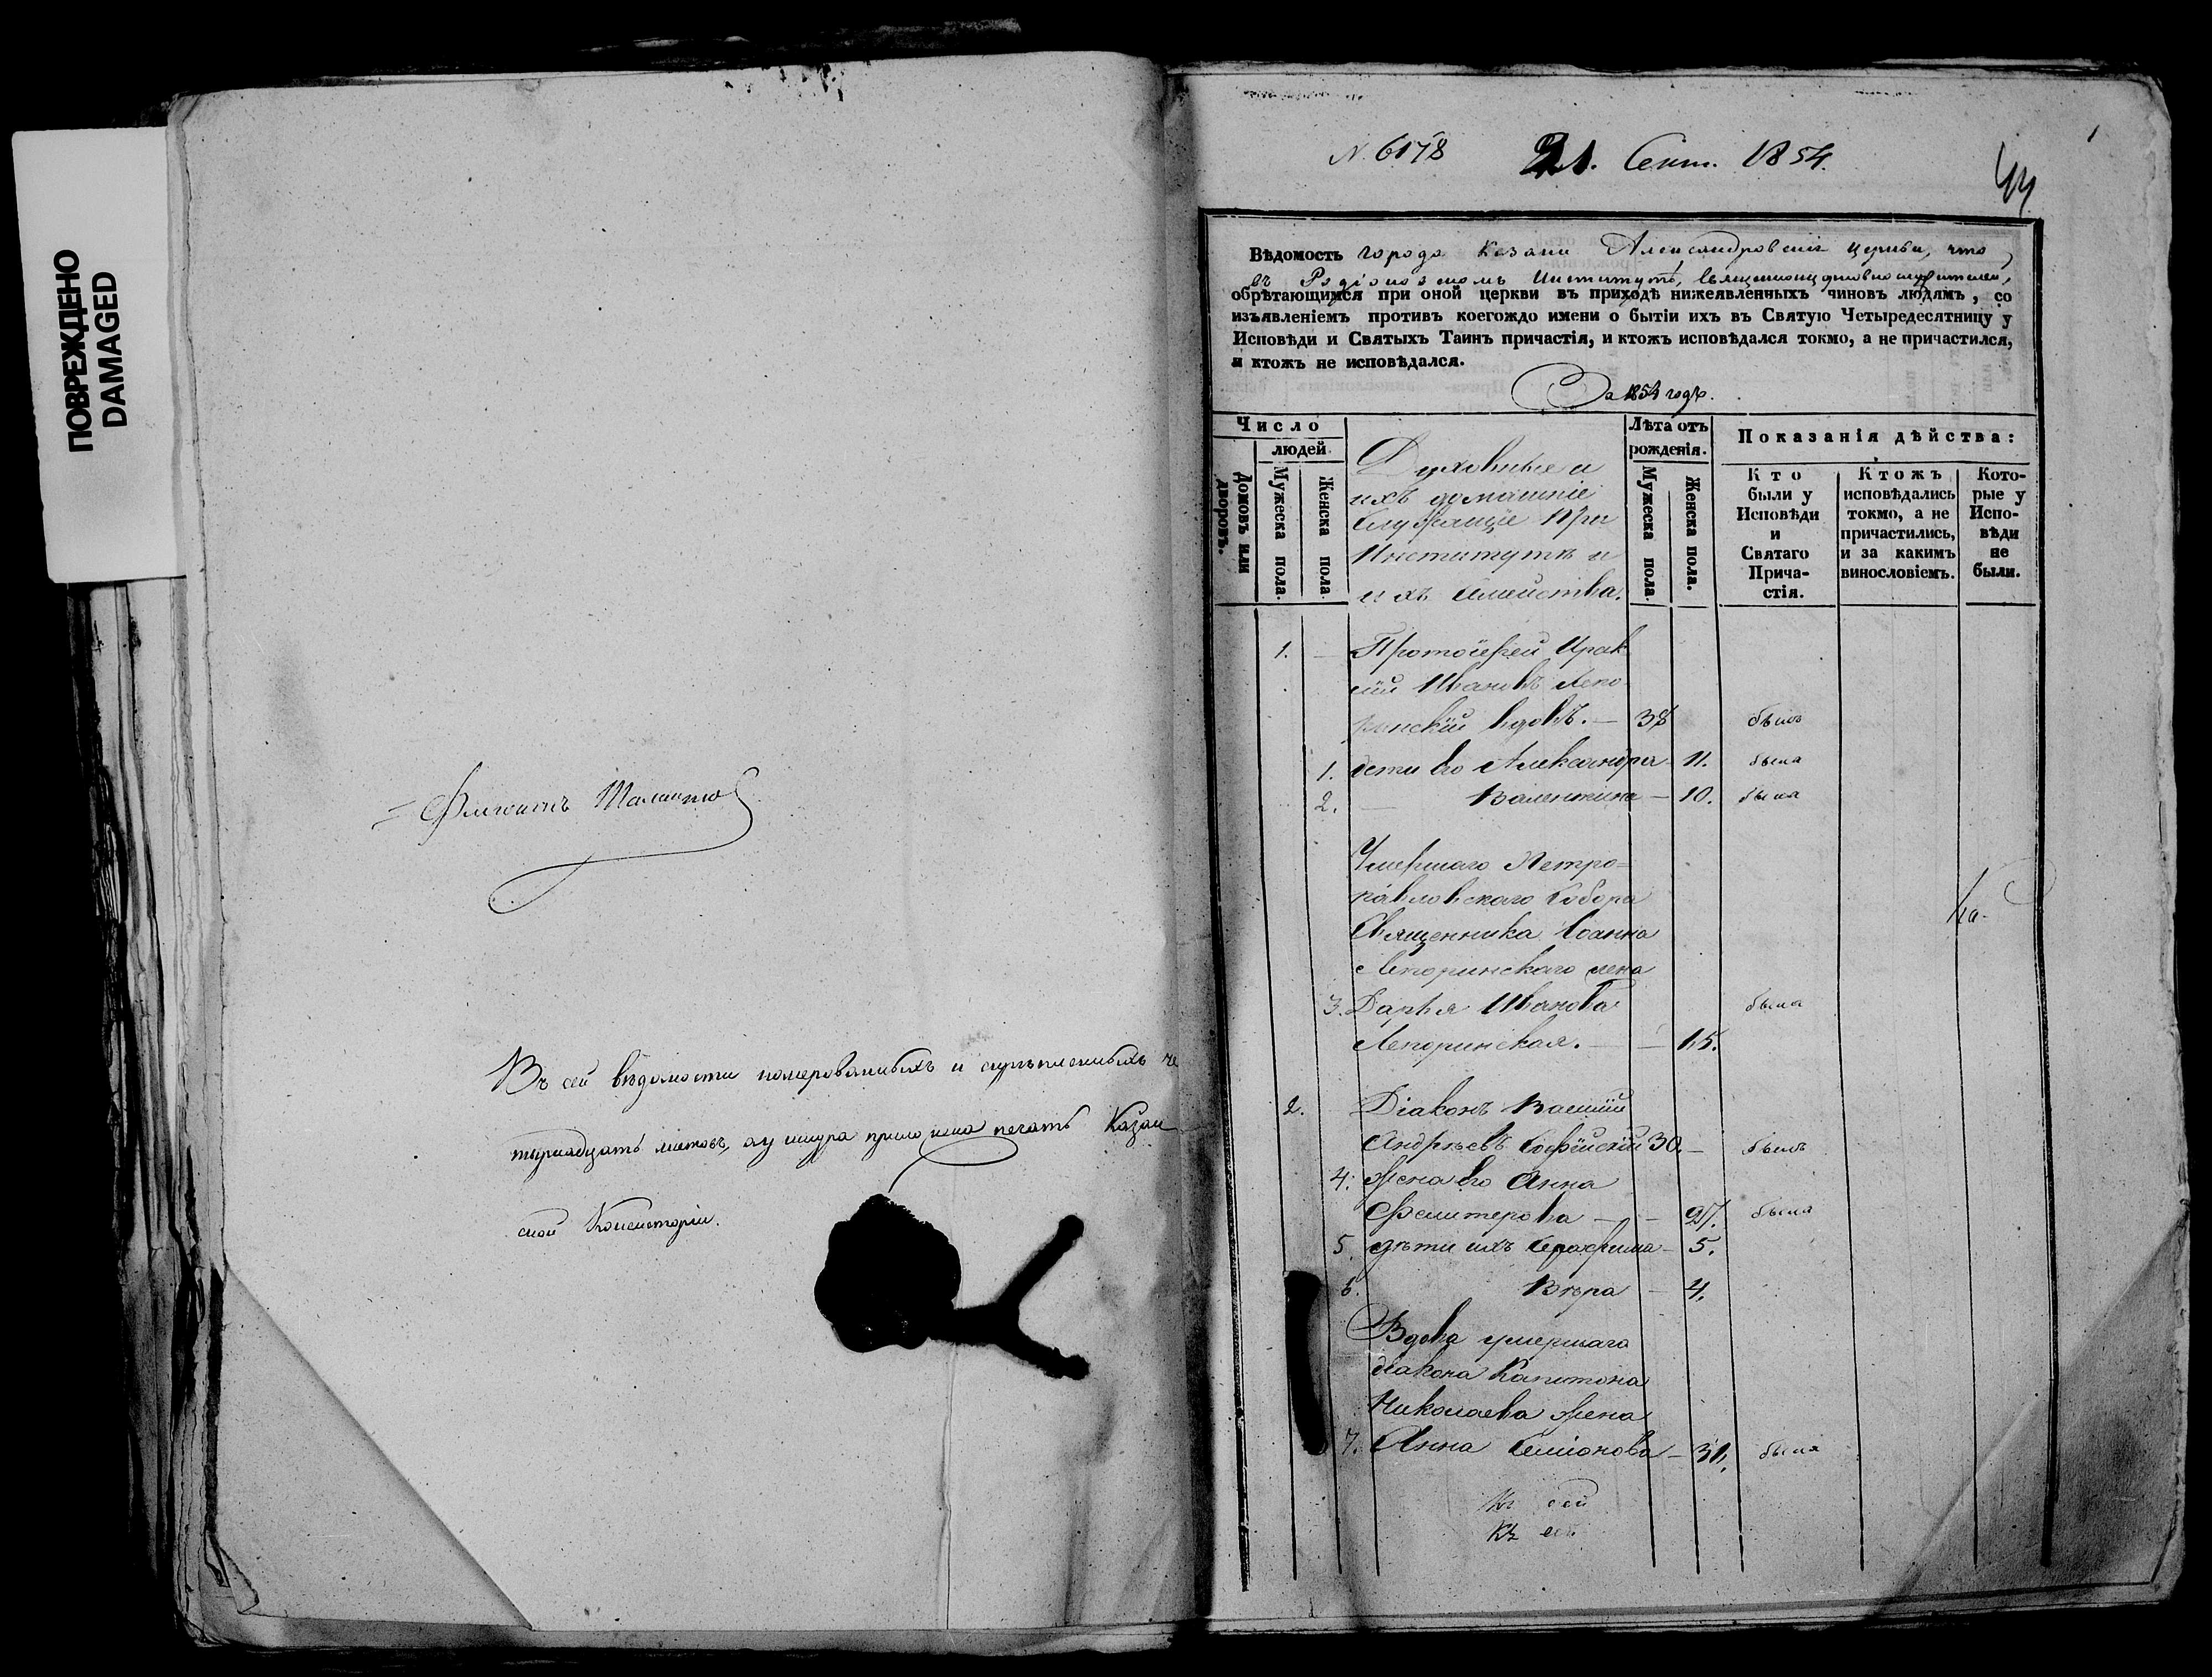 ПОВРЕЖДЕНО
DAMAGED
Въ сей вѣдомости номерованныхъ и скрѣпленныхъ че
тырнадцать листовъ, ку шнура приложена печать Казан
ской Консисторіи.
N. 6178 21. Сент. 1854.
44
1
Вѣдомость города Казани Александровскія церкви, что
въ Родіоновскомъ Институтѣ, Священноцерковнослужителей,
обрѣтающимся при оной церкви въ приходѣ нижеявленныхъ чиновъ людямъ, со
изъявленіемъ противъ коегождо имени о бытіи ихъ въ Святую Четыредесятницу у
Исповѣди и Святыхъ Таинъ причастія, и ктожъ исповѣдался токмо, а не причастился,
и ктожъ не исповѣдался.
За 1854 годъ.
Число
людей.
Домовъ или
дворовъ.
Мужеска пола.
Женска пола.
Духовные и
ихъ домашніе
Служащіе При
Институтѣ и
ихъ Семейства.
Лѣта отъ
рожденія.
Мужеска пола.
Женска пола.
Показанія дѣйства:
Кто
были у
Исповѣди
и
Святаго
Прича-
стія.
Ктожъ
исповѣдались
токмо, а не
причастились,
и за какимъ
винословіемъ.
Кото-
рые у
Испо-
вѣди
не
были.
1. Протоіерей Ирак
лій Ивановъ Лепо
ринскій вдовъ. — 38 былъ
1. дети его Александра 11. была
2. — Валентина — 10. была
Умершаго Петро=
павловскаго Собора
Священника Іоанна
Лепоринскаго жена
3. Дарья Иванова была
Лепоринская. — 65.
2. Діаконъ Василій
Андреевъ Софійскій 30. — былъ
4. Жена его Анна
— 27. была
5. дѣти ихъ Серафима — 5.
6. Вѣра — 4.
Вдова умершаго
діакона Капитона
Николаева жена
7. Анна Симіонова — 31. была
Къ сей
Къ сей